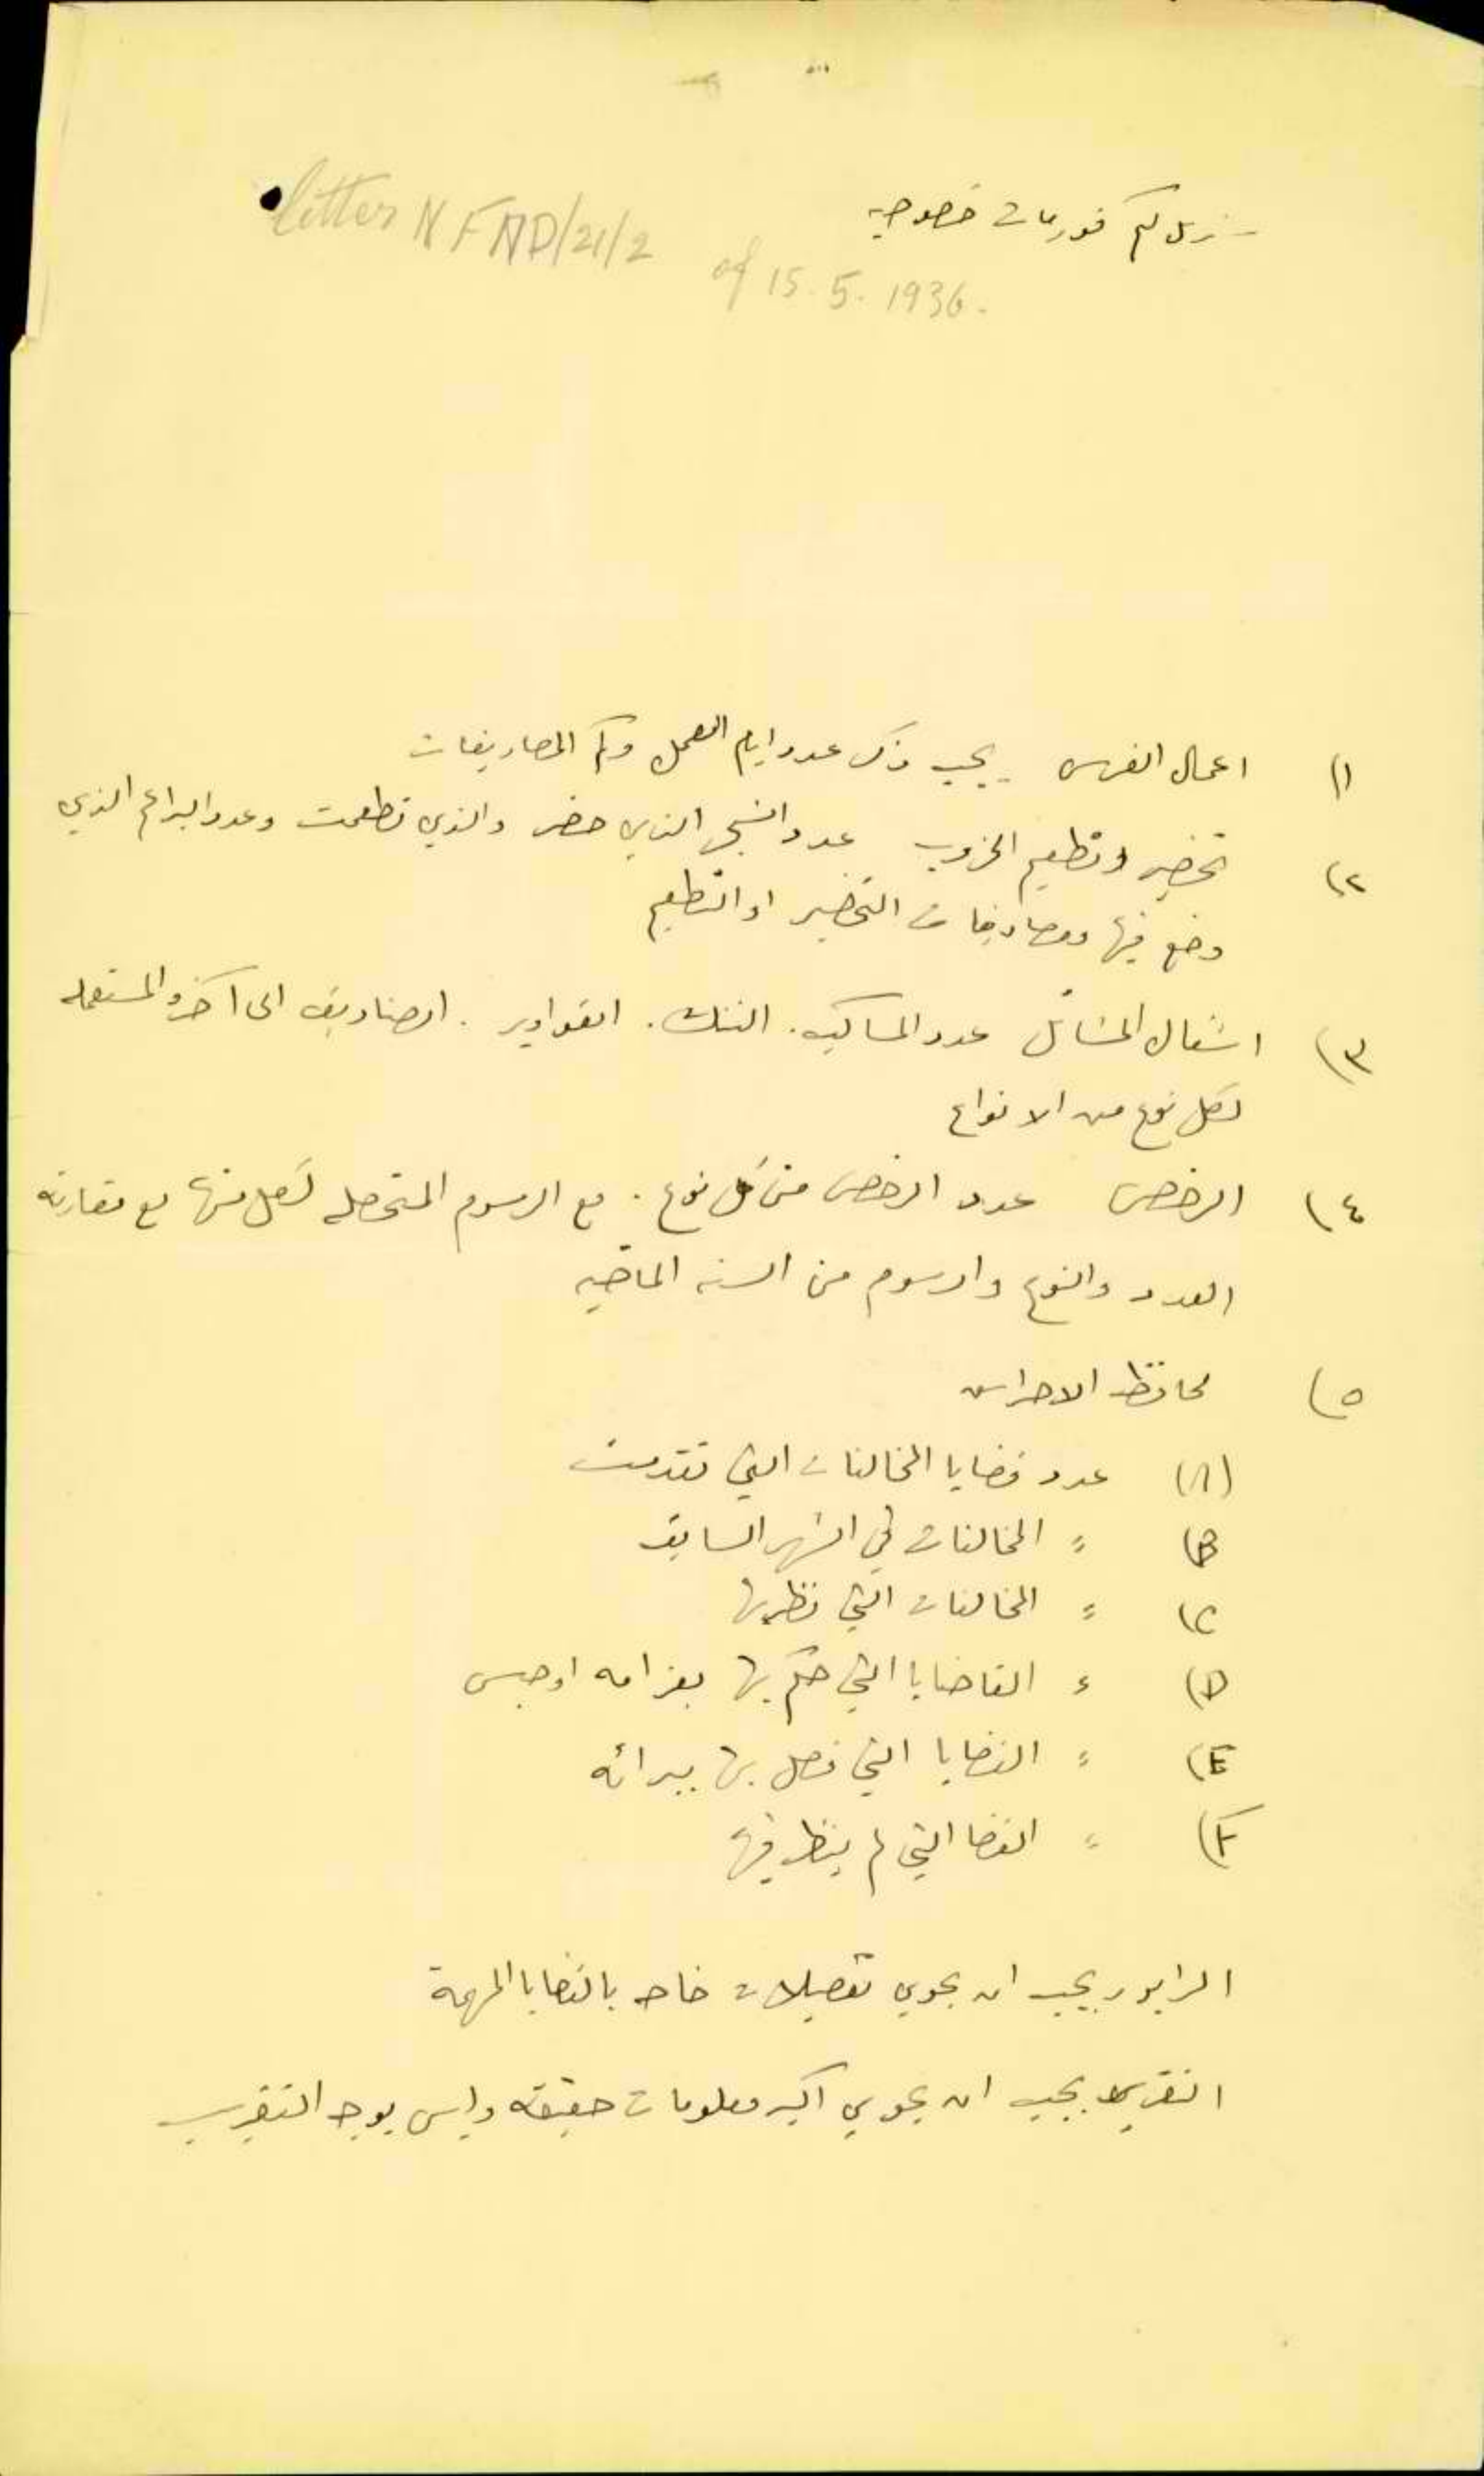 سنرسل لكم فورمات خصوصيه
letter N FND/21/2 of 15.5.1936.
١) اعمال الغرس يجب ذكر عدد ايام العمل وكم المصاريفات
٢) تحضير وتطعيم الخروب عدد الشجر الذي حضر والذي تطعمت وعدد البراعم الذي
وضع فيها ومصاريفات التحضير او التطعيم
٣) اشغال المشاتل عدد المساكب. التنك. القوارير. الصناديق الى آخره المستعمله
لكل نوع من الانواع
٤) الرخص عدد الرخص من كل نوع. مع الرسوم المتحصله لكل منها مع مقارنة
العدد والنوع والرسوم من السنه الماضيه
٥) محافظة الاحراش
(A) عدد قضايا المخالفات التي تقدمت
B) " المخالفات في الشهر السابق
C) " المخالفات التي نظر بها
D) " القاضايا التي حكم بها بغرامه او حبس
E) " القضايا التي فصل بها ببرائه
F) " القضا التي لم ينظر فيها
الرابور يجب ان يحوي تفصيلات خاصه بالقضايا المهمة
التقرير يجب ان يحوي اكبر معلومات حقيقه وليس بوجه التقريب